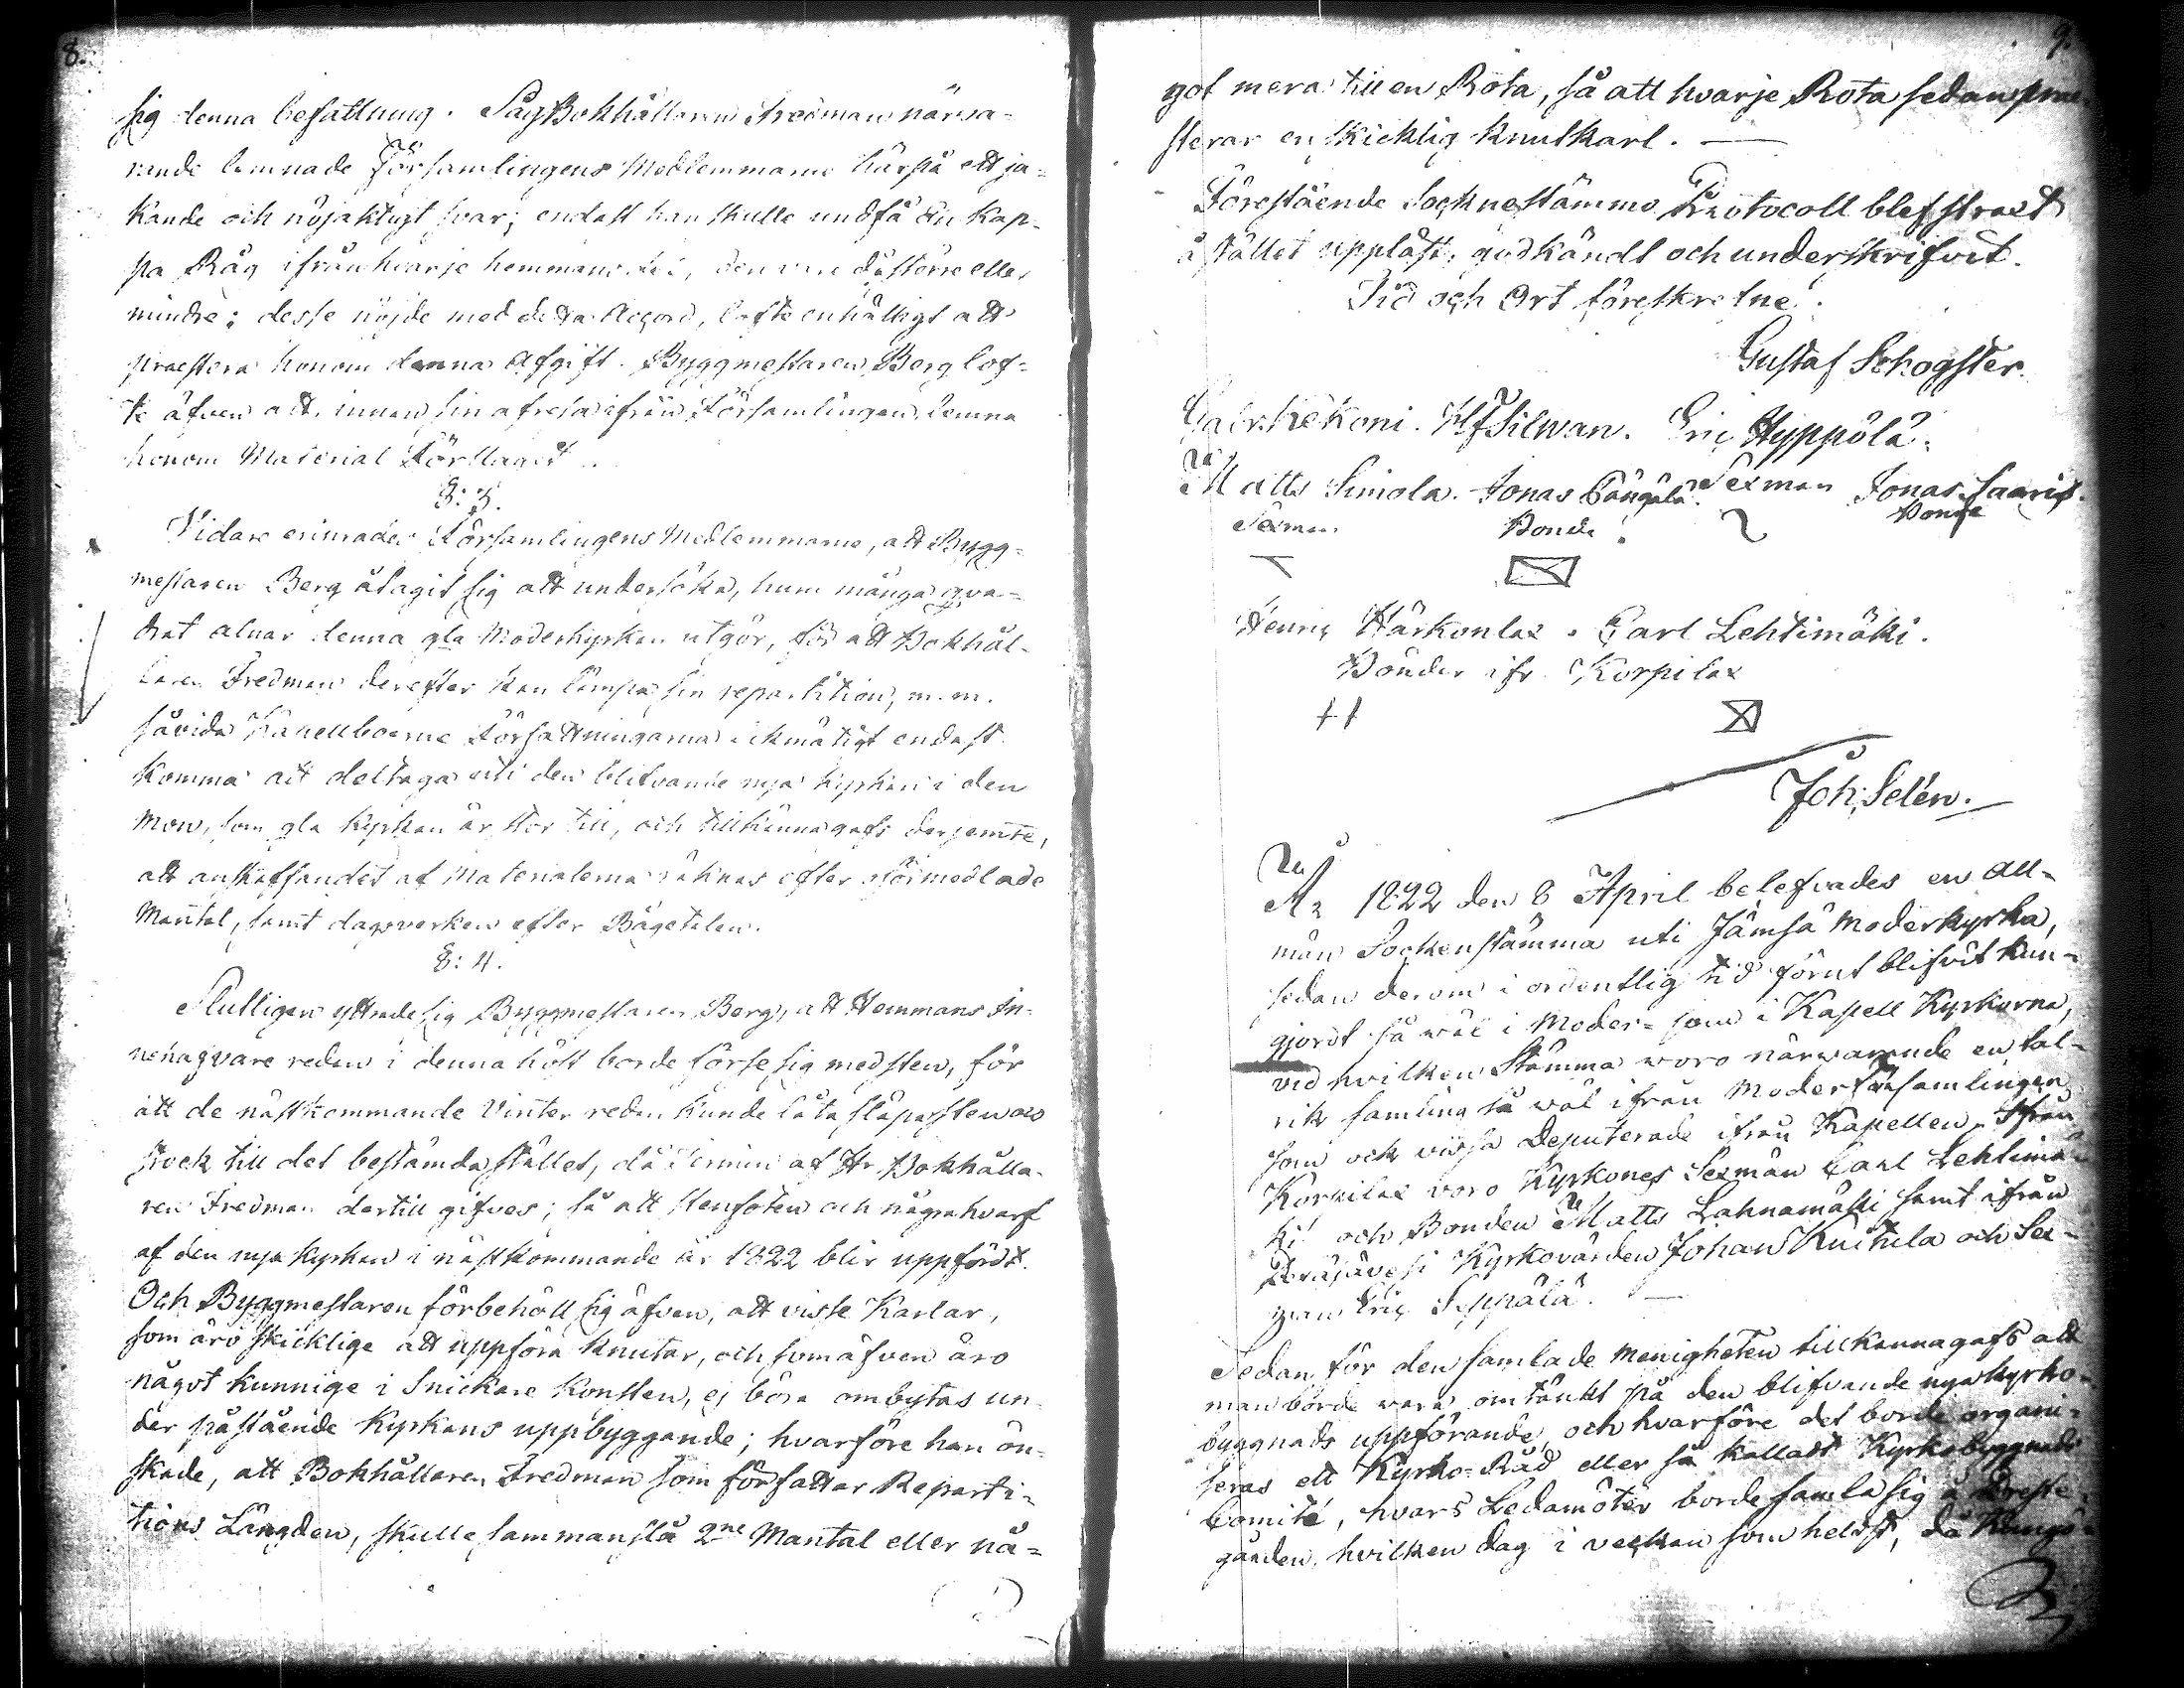 8.
sig denna befattning. Såg Bokhållaren Fredman närva-
rande lemnade Församlingens Medlemmarne härpå ett ja-
kande och nöjaktigt svar; endast han skulle undfå en Kap-
pa Råg ifrån hvarje hemmans del, den vare då större eller
mindre; desse nöjde med detta Accord, lofte enhälligt att
præstera honom denna Afgift. Byggmestaren Berg lof-
te äfven att innan sin afresa ifrån Församlingen lemna
honom Material Förslaget.
§: 3.
Vidare erinrades Församlingens Medlemmarne, att Bygg-
mestaren Berg åtagit sig att undersöka, huru många qva-
drat alnar denna gla Moderkyrkan utgör, för att Bokhål-
laren Fredman derefter kan lämpa sin repartition, m.m.
såvida Kapellboerne Författningarna likmätigt endast
komma att deltaga uti den blifvande nya kyrkan i den
mon, som gla kyrkan är stor till, och tillkännagafs derjemte,
att anskaffandet af Materialerna räknas efter oförmedlade
Mantal, samt dagsverken efter Bågetalen.
§: 4.
Slutligen yttrade sig Byggmestaren Berg, att Hemmans In-
nehagvare redan i denna höst borde förse sig med sten, för
att de nästkommande Vinter redan kunde låta släpa sten och
stock till det bestämda stället, då Termin af Hr Bokhålla-
ren Fredman dertill gifves; så att stenfoten och några hvarf
af den nya kyrkan i nästkommande år 1822 blir uppfördt.
Och Byggmestaren förbehöll sig äfven, att visse Karlar,
som äro skicklige att uppföra knutar, och som äfven äro
något kunnige i Snickare Konsten, ej böra ombytas un-
der påstående Kyrkans uppbyggande; hvarföre han ön-
skade, att Bokhållaren Fredman som författar Reparti-
tions Längden, skulle sammanslå 2ne Mantal eller nå-
9.
got mera till en Rota, så att hvarje Rota sedan præ-
sterar en skicklig knutkarl. —
Förestående Socknestämmo Protocoll blef straxt
å stället uppläst, godkändt och underskrifvit.
Tid och Ort föreskrefne.
Gustaf Schogster.
Gabr. Kekoni. HfSilwan. Eric Hyppölä.
Matts Simola. Jonas Pängälä. Sexman Jonas Saaris.
Sexman Bonde Bonde
Henric Härkonlax. Carl Lehtimäki.
Bönder ifr. Korpilax
Joh: Selén.
År 1822 den 8 April belefvades en All-
män Sockenstämma uti Jämsä Moderkyrka,
sedan derom i ordentlig tid förut blifvit kun-
gjordt så wäl i Moder- som i Kapell Kyrkorna,
vid hvilken Stämma woro närwarande en tal-
rik samling så wäl ifrån Moderförsamlingen
som ock vissa Deputerade ifrån Kapellen. Ifrån
Korpilax voro Kyrkones Sexmän Carl Lehtimä-
ki och Bonden Matts Lahnamäki samt ifrån
Petäjävesi Kyrkovärden Johan Kuitula och Sex-
man Eric Seppälä. —
Sedan för den samlade Menigheten tillkännagafs att
man borde vara omtänkt på den blifvande nya kyrko-
byggnads uppförande, och hvarföre det borde organi-
seras ett Kyrko-Råd eller så kallatt Kyrkobyggnads
Comité, hvars Ledamöter borde samla sig å Preste-
gården, hvilken dag i veckan som heldst, då